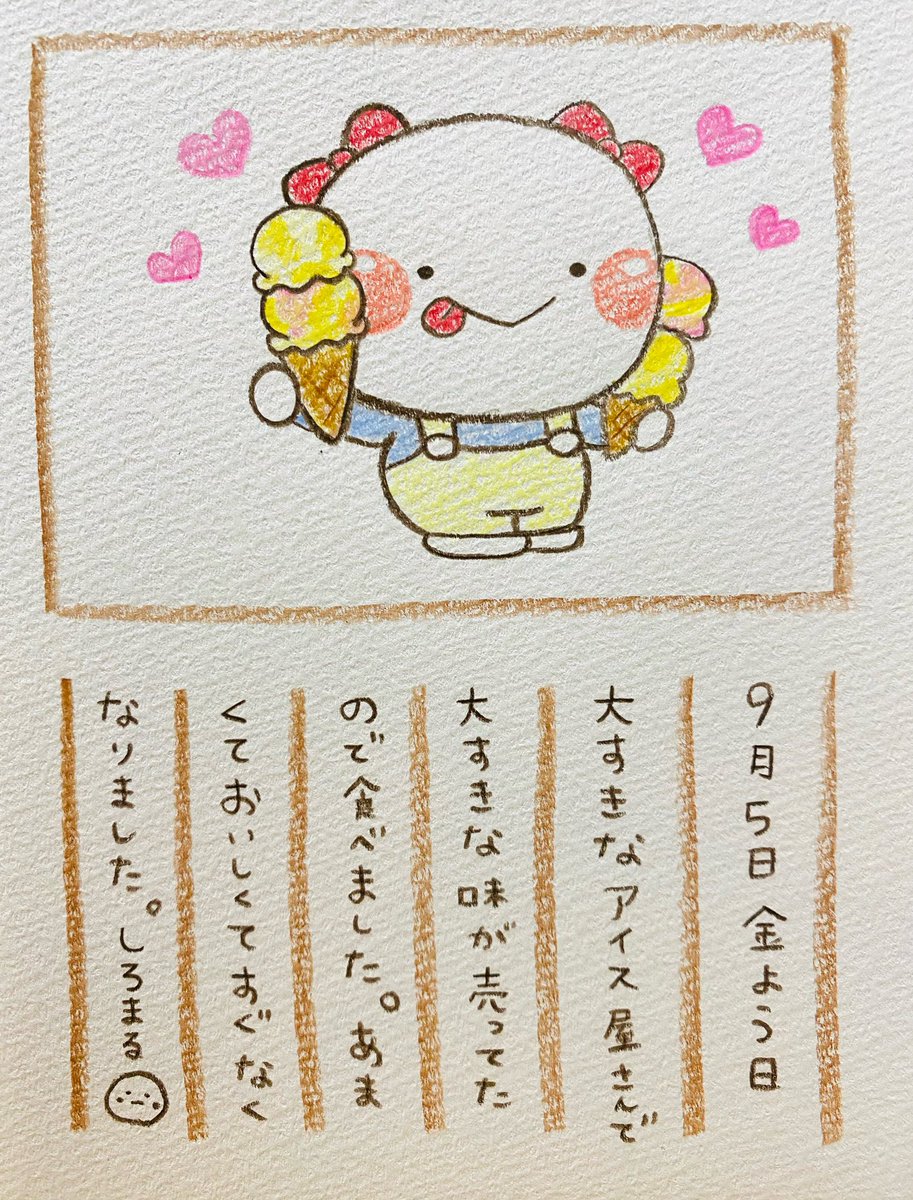 9月5日金よう日
大すきなアイス屋さんで
大すきな味が売ってた
ので食べました。あま
くておいしくてすぐなく
なりました。しろまる